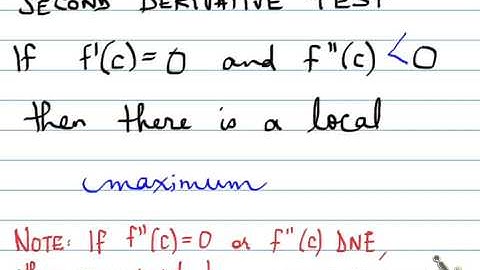 SECOND DERIVATIVE TEST
If f'(c) = 0 and f"(c) < 0
then there is a local
maximum
NOTE: If f"(c) = 0 or f"(c) DNE,